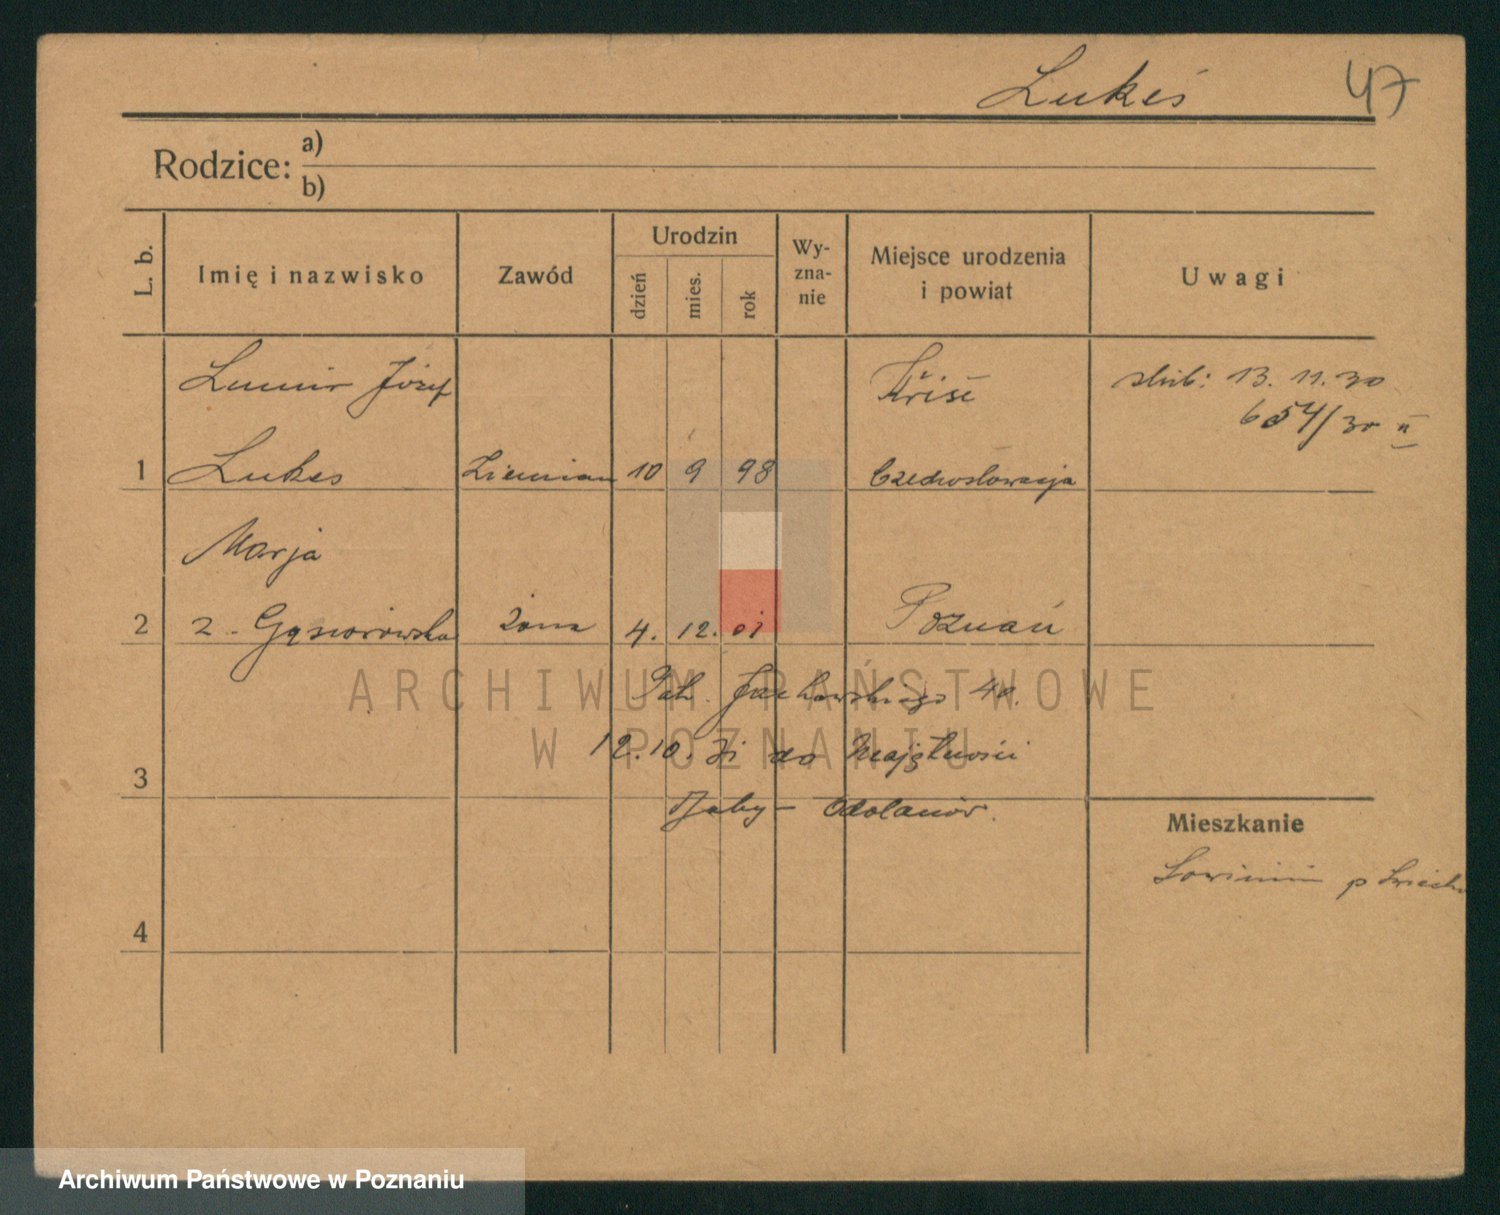 Lukeś 47
Rodzice: a)
b)
L. b.
Imię i nazwisko
Zawód
Urodzin
dzień
mies.
rok
Wy-
zna-
nie
Miejsce urodzenia
i powiat
Uwagi
Lumir Józef
Křič
ślub: 13. 11. 30
654/30 II
1 Lukes Ziemian 10 9 98 Czechosłowacja
Marja
2 z Gąsiorowska żona 4. 12. 01 Poznań
ARCHIWUM PAŃSTWOWE
W POZNANIU
Jackowskiego 40.
12.10. 31 do Majętności
3
Odolanów.
Mieszkanie
4
Archiwum Państwowe w Poznaniu